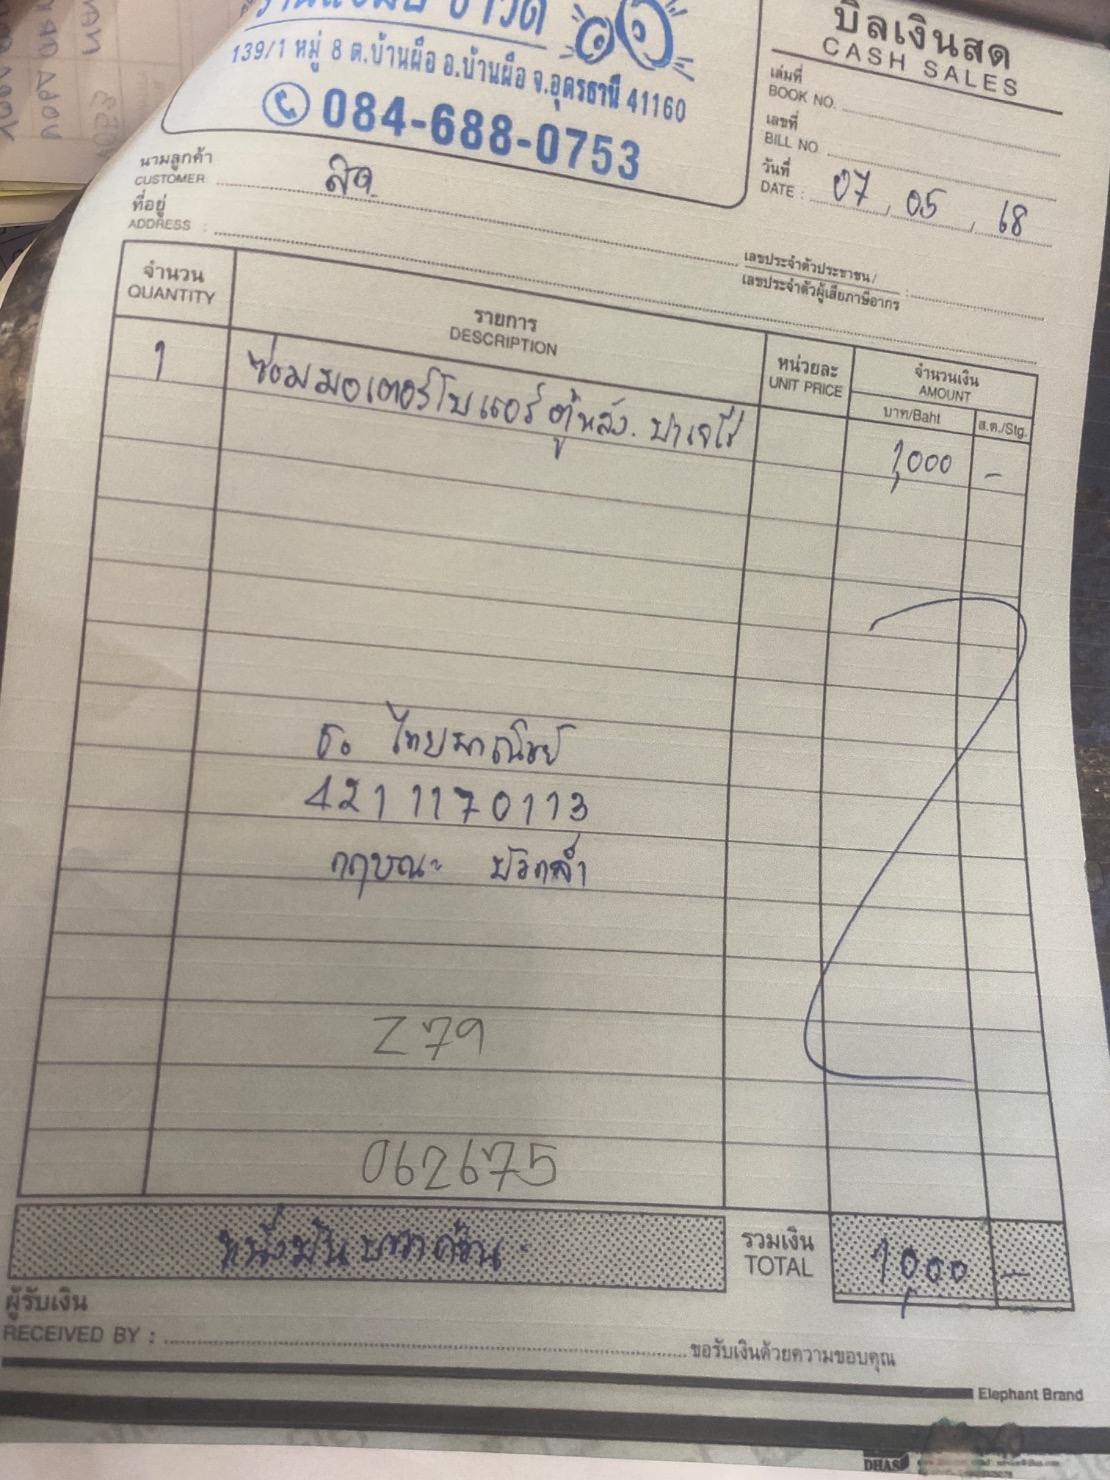 บิลเงินสด
CASH SALES
139/1 หมู่ 8 ต.บ้านผือ อ.บ้านผือ จ.อุดรธานี 41160
084-688-0753
เล่มที่
BOOK NO.
เลขที่
BILL NO.
วันที่
DATE : 07 05 68
นามลูกค้า
CUSTOMER สด
ที่อยู่
ADDRESS :
เลขประจำตัวประชาชน /
เลขประจำตัวผู้เสียภาษีอากร :
จำนวน รายการ หน่วยละ จำนวนเงิน
QUANTITY DESCRIPTION UNIT PRICE AMOUNT
บาท/Baht ส.ต./Stg.
1 ซ่อมมอเตอร์โบเวอร์ตู้หลัง. ปาเจโร่ 1,000 -
ธ. ไทยพาณิชย์
4211170113
กฤษณะ
Z79
062675
หนึ่งพันบาทถ้วน รวมเงิน 1,000 -
TOTAL
ผู้รับเงิน
RECEIVED BY :
ขอรับเงินด้วยความขอบคุณ
Elephant Brand
DHAS